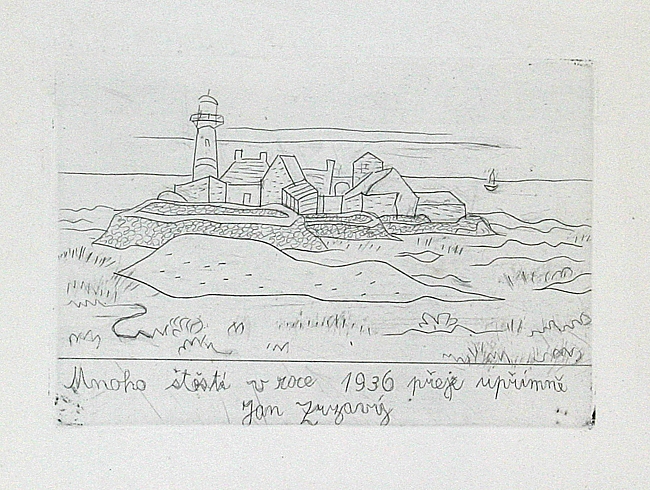 Mnoho štěstí v roce 1936 přeje upřímně
Jan Zrzavý